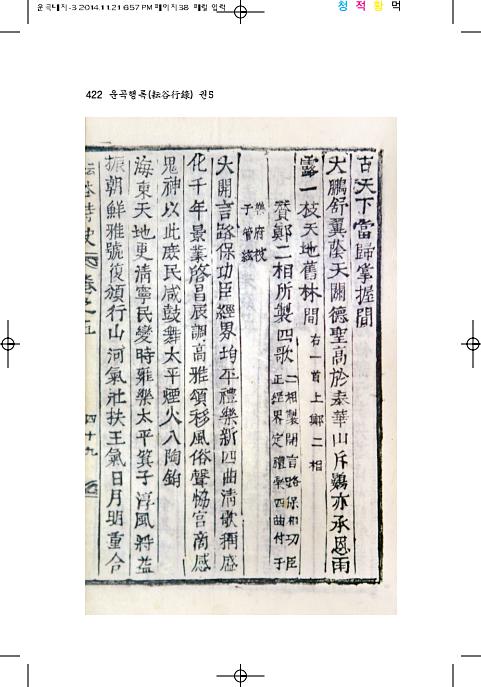 청 적 황 먹
422 운곡행록(耘谷行錄) 권5
古天下當歸掌握間
大鵬舒翼蔭天關德聖高於泰華山斥鷃亦承恩雨
露一枝天地舊林間 右一首上鄭二相
賛鄭二相所製四歌 二相製開言路保相功臣
正經界定禮樂四曲付于
樂府被
于管絃
大開言路保功臣經界均平禮樂新四曲清歌稱盛
化千年景業啓昌辰調高雅頌移風俗聲恊宮商感
鬼神以此庶民咸鼓舞太平煙火入陶鈞
海東天地更清寧民變時雍樂太平箕子淳風將益
振朝鮮雅號復頒行山河氣壯扶王氣日月明重合
耘谷詩史 卷之五 四十九